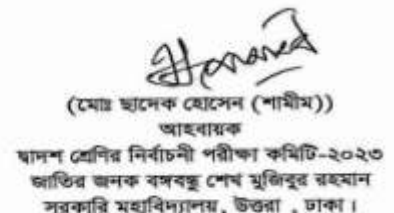 (মোঃ ছাদেক হোসেন (শামীম))
আহবায়ক
দ্বাদশ শ্রেণির নির্বাচনী পরীক্ষা কমিটি-২০২৩
জাতির জনক বঙ্গবন্ধু শেখ মুজিবুর রহমান
সরকারি মহাবিদ্যালয়, উত্তরা , ঢাকা।